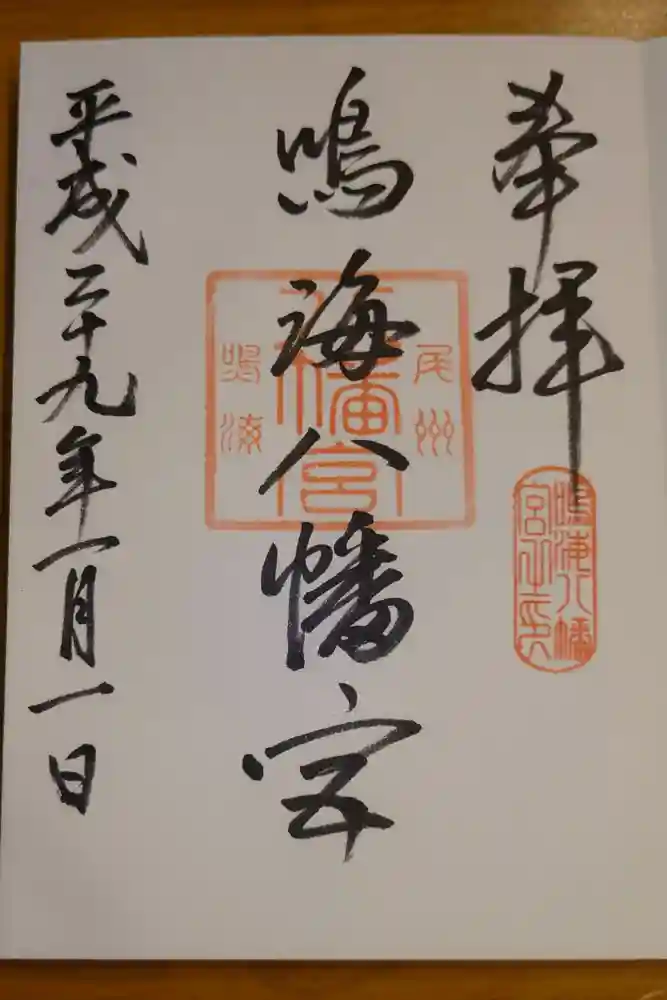 奉拝
鳴海八幡宮
平成二十九年一月一日
尾州
八幡宮
鳴海
鳴海八幡
宮之印